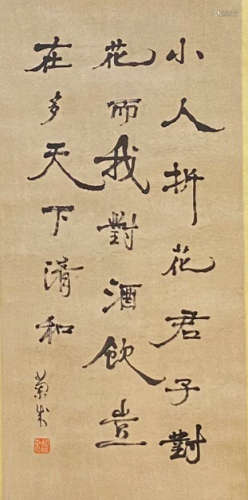 小人折花君子對
花而我對酒飲豈
在多天下清和